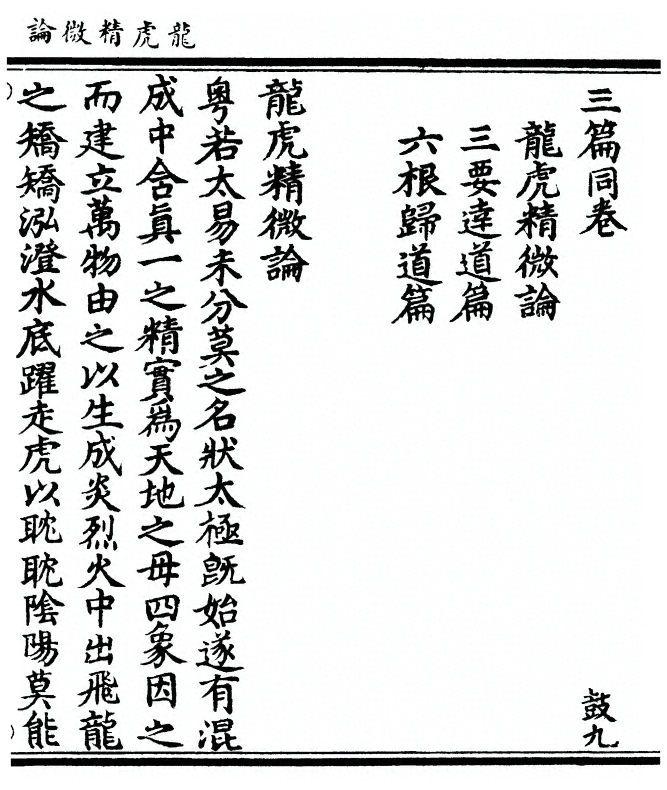 龍虎精微論
三篇同卷　鼓九
龍虎精微論
三要達道篇
六根歸道篇
龍虎精微論
粵若太易未分莫之名狀太極既始遂有混
成中含眞一之精實爲天地之母四象因之
而建立萬物由之以生成炎烈火中出飛龍
之矯矯泓澄水底躍走虎以耽耽陰陽莫能